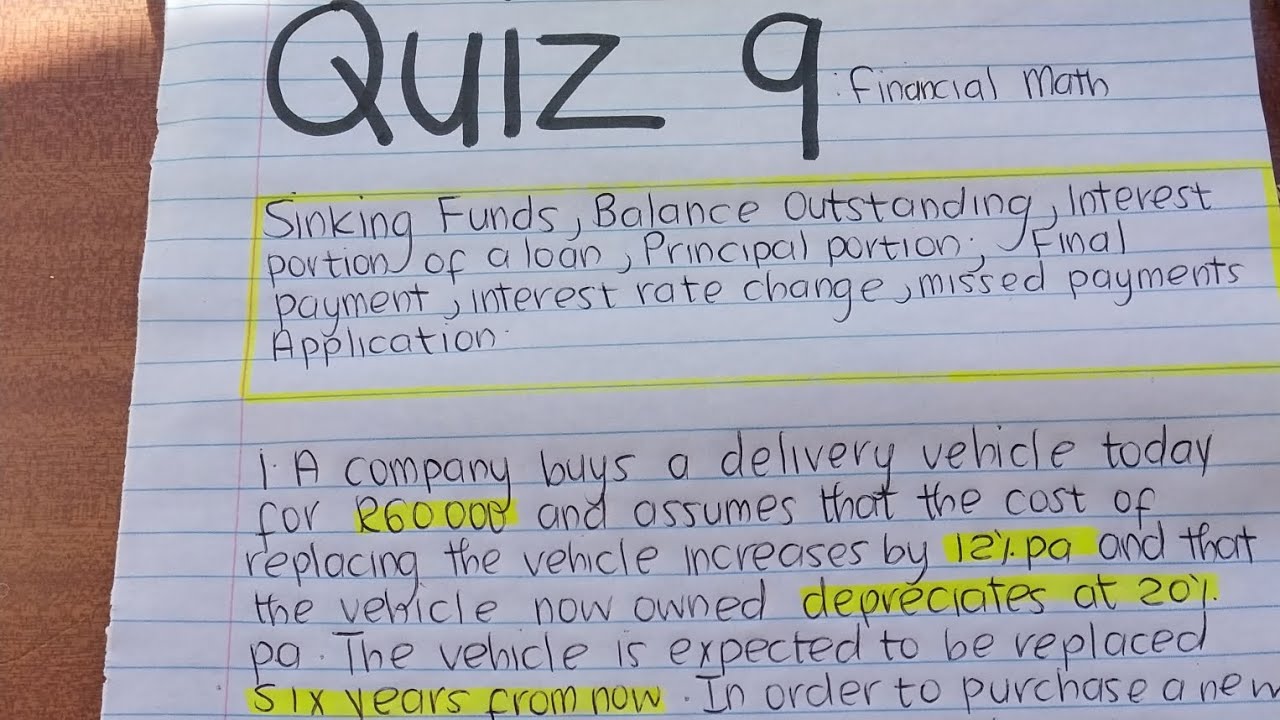 QUIZ 9: Financial Math
Sinking Funds, Balance Outstanding, Interest
portion of a loan, Principal portion, Final
payment, interest rate change, missed payments
Application.
1. A company buys a delivery vehicle today
for R60 000 and assumes that the cost of
replacing the vehicle increases by 12% pa and that
the vehicle now owned depreciates at 20%
pa. The vehicle is expected to be replaced
six years from now. In order to purchase a new